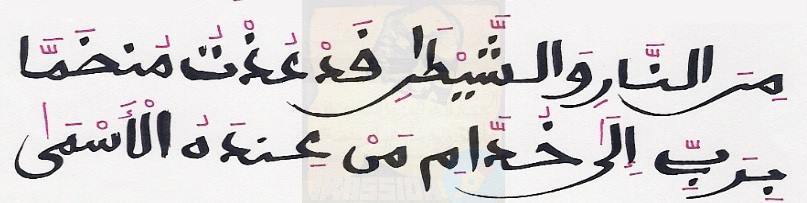 مِنَ النَّارِ وَالشَّيْطَٰنِ قَدْ عُذْتُ مُنضَمَّا
بِرَبِّي إِلَىٰ خُدَّامِ مَنْ عِندَهُ الْأَسْمَىٰ